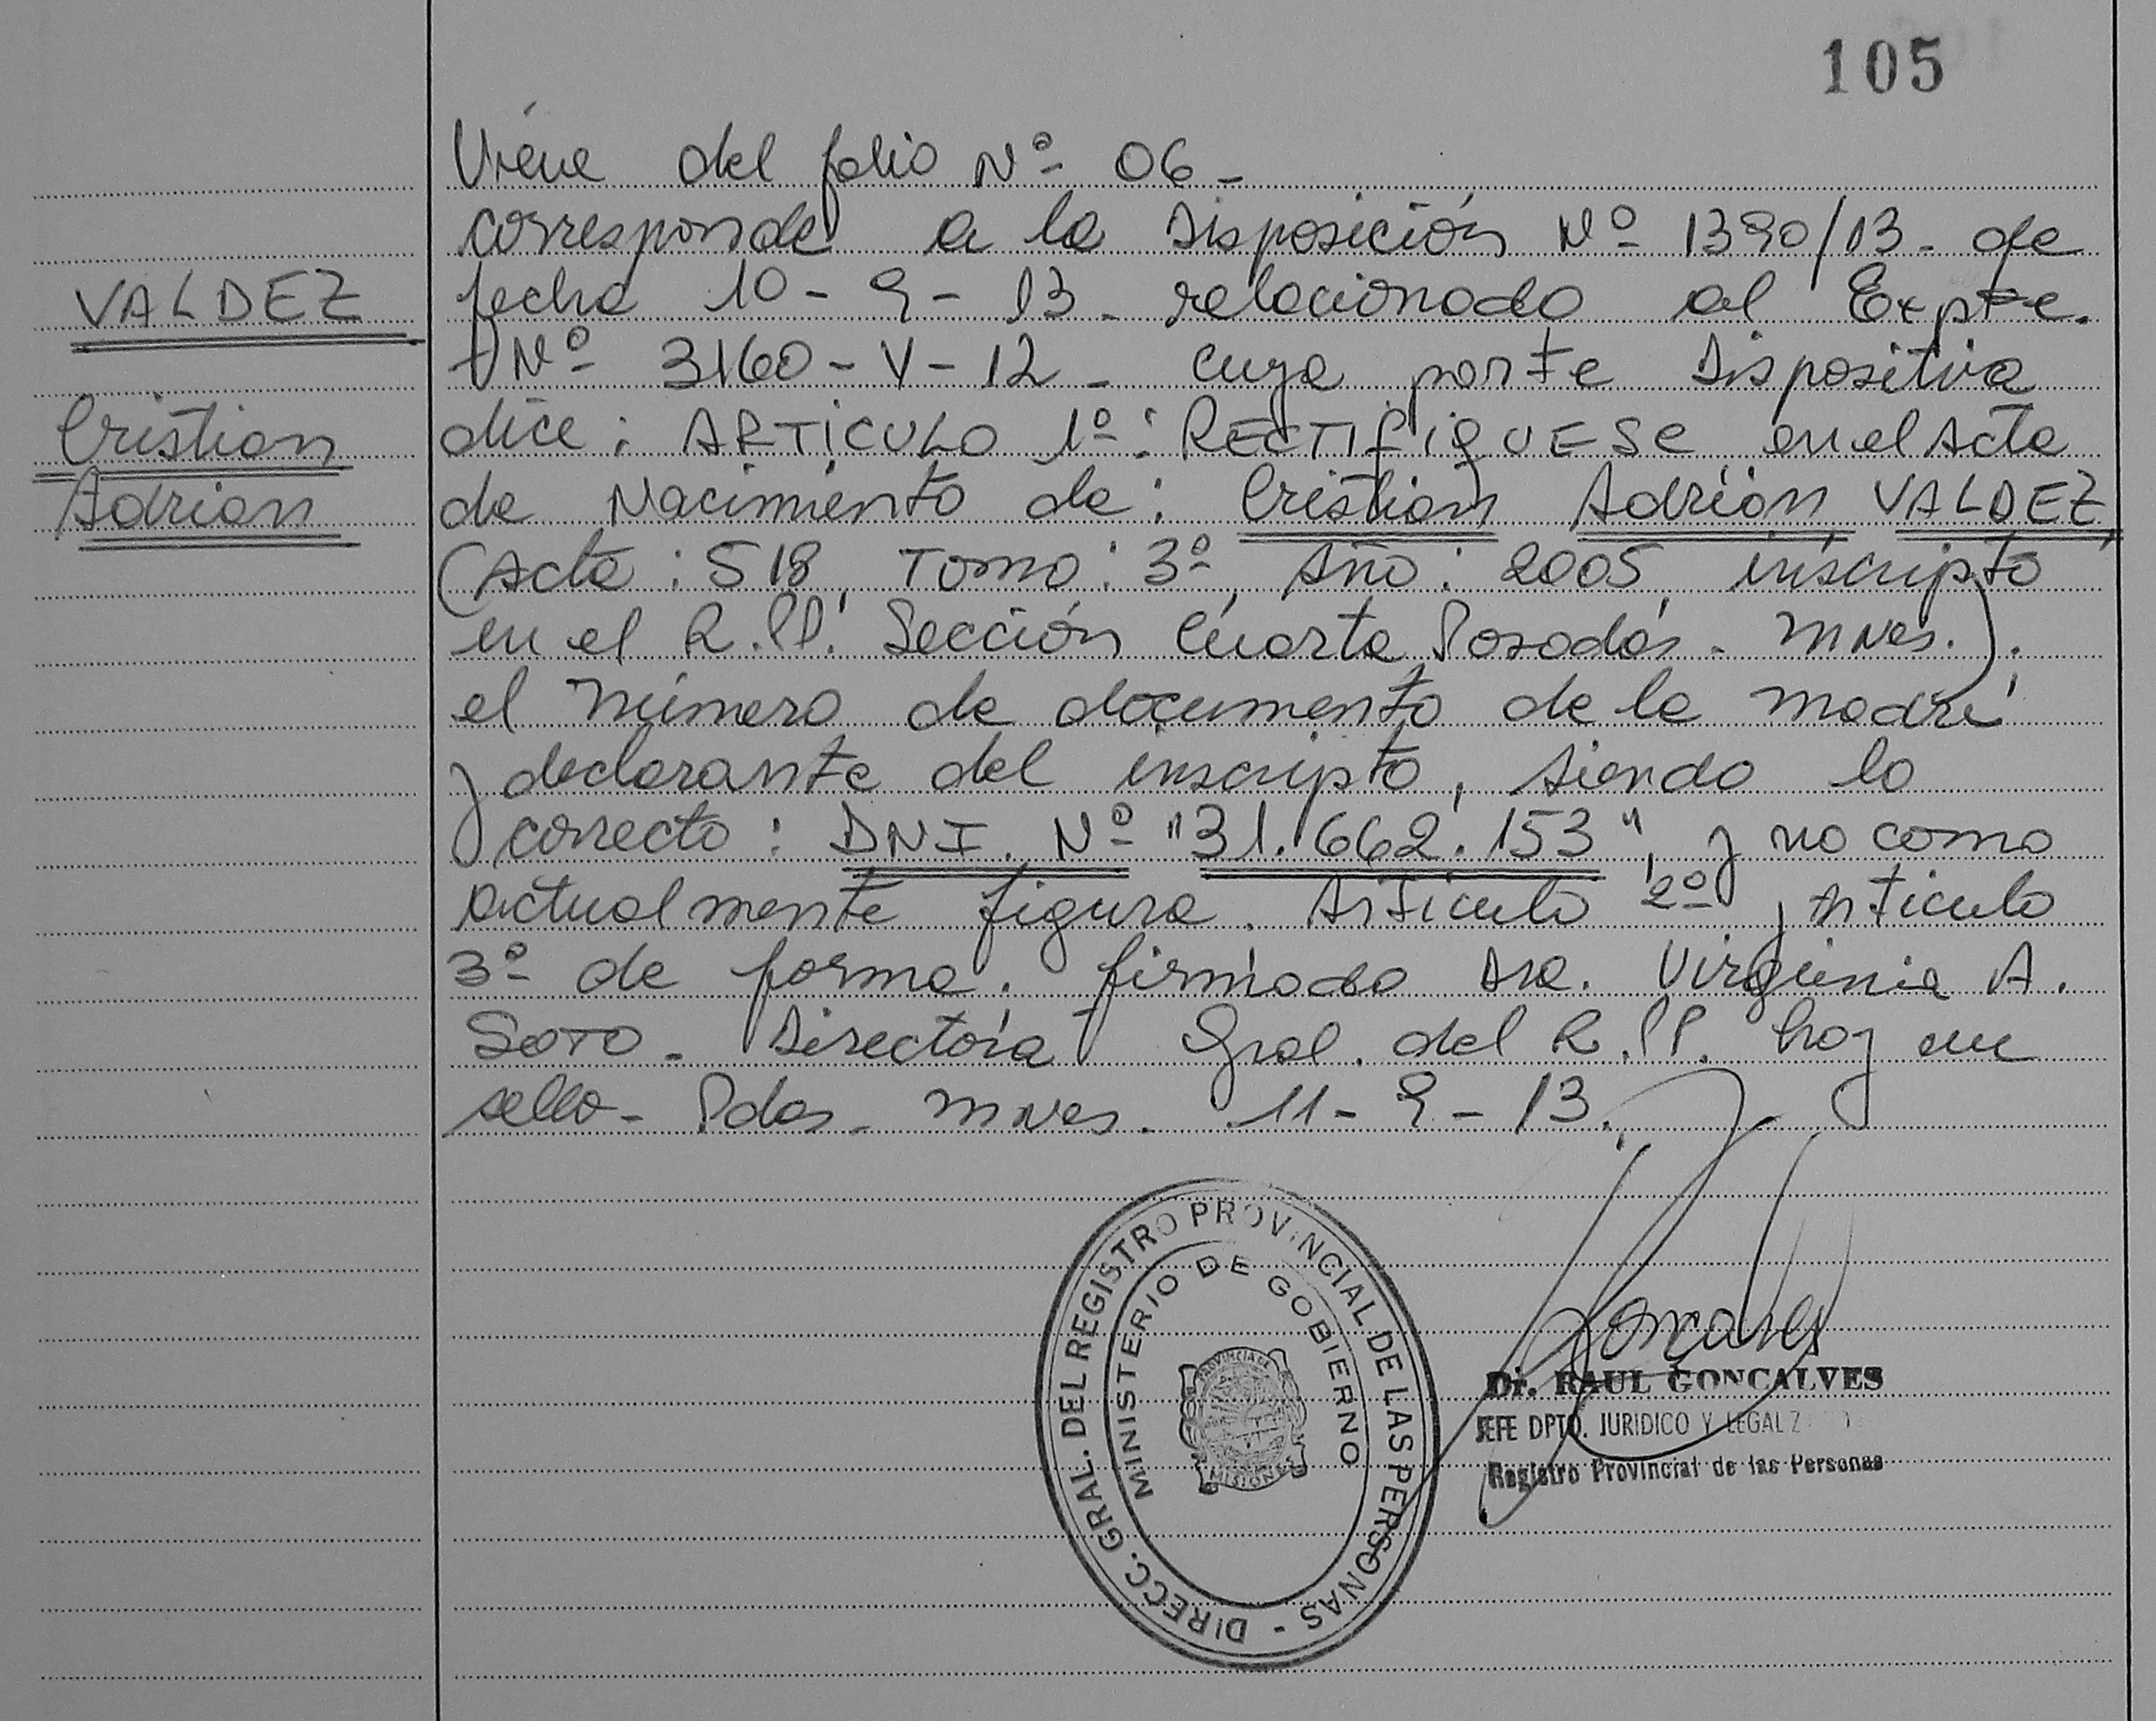 105
Viene del folio Nº 06 -
corresponde a la Disposición Nº 1390/13 - de
VALDEZ
fecha 10 - 9 - 13 - relacionado al Expte.
Nº 3160 - V - 12 - cuya parte Dispositiva
Cristian
dice: ARTICULO 1º: RECTIFIQUESE en el Acta
Adrian
de Nacimiento de: Cristian Adrián VALDEZ
(Acta: 518, Tomo: 3º, Año: 2005, inscripto
en el R.PP. Sección Cuarta, Posadas - Mnes.).
el número de documento de la madre
y declarante del inscripto, siendo lo
correcto: DNI. Nº "31.662.153", y no como
actualmente figura. Articulo 2º y Articulo
3º de forma. firmado Dra. Virginia A.
SOTO - Directora Gral. del R.PP. hay un
sello - Pdas - Mnes. 11 - 9 - 13.
DIRECC. GRAL. DEL REGISTRO PROVINCIAL DE LAS PERSONAS -
MINISTERIO DE GOBIERNO
PROVINCIA DE
MISIONES
Goncalves
Dr. RAUL GONCALVES
JEFE DPTO. JURIDICO Y LEGALIZ
Registro Provincial de las Personas